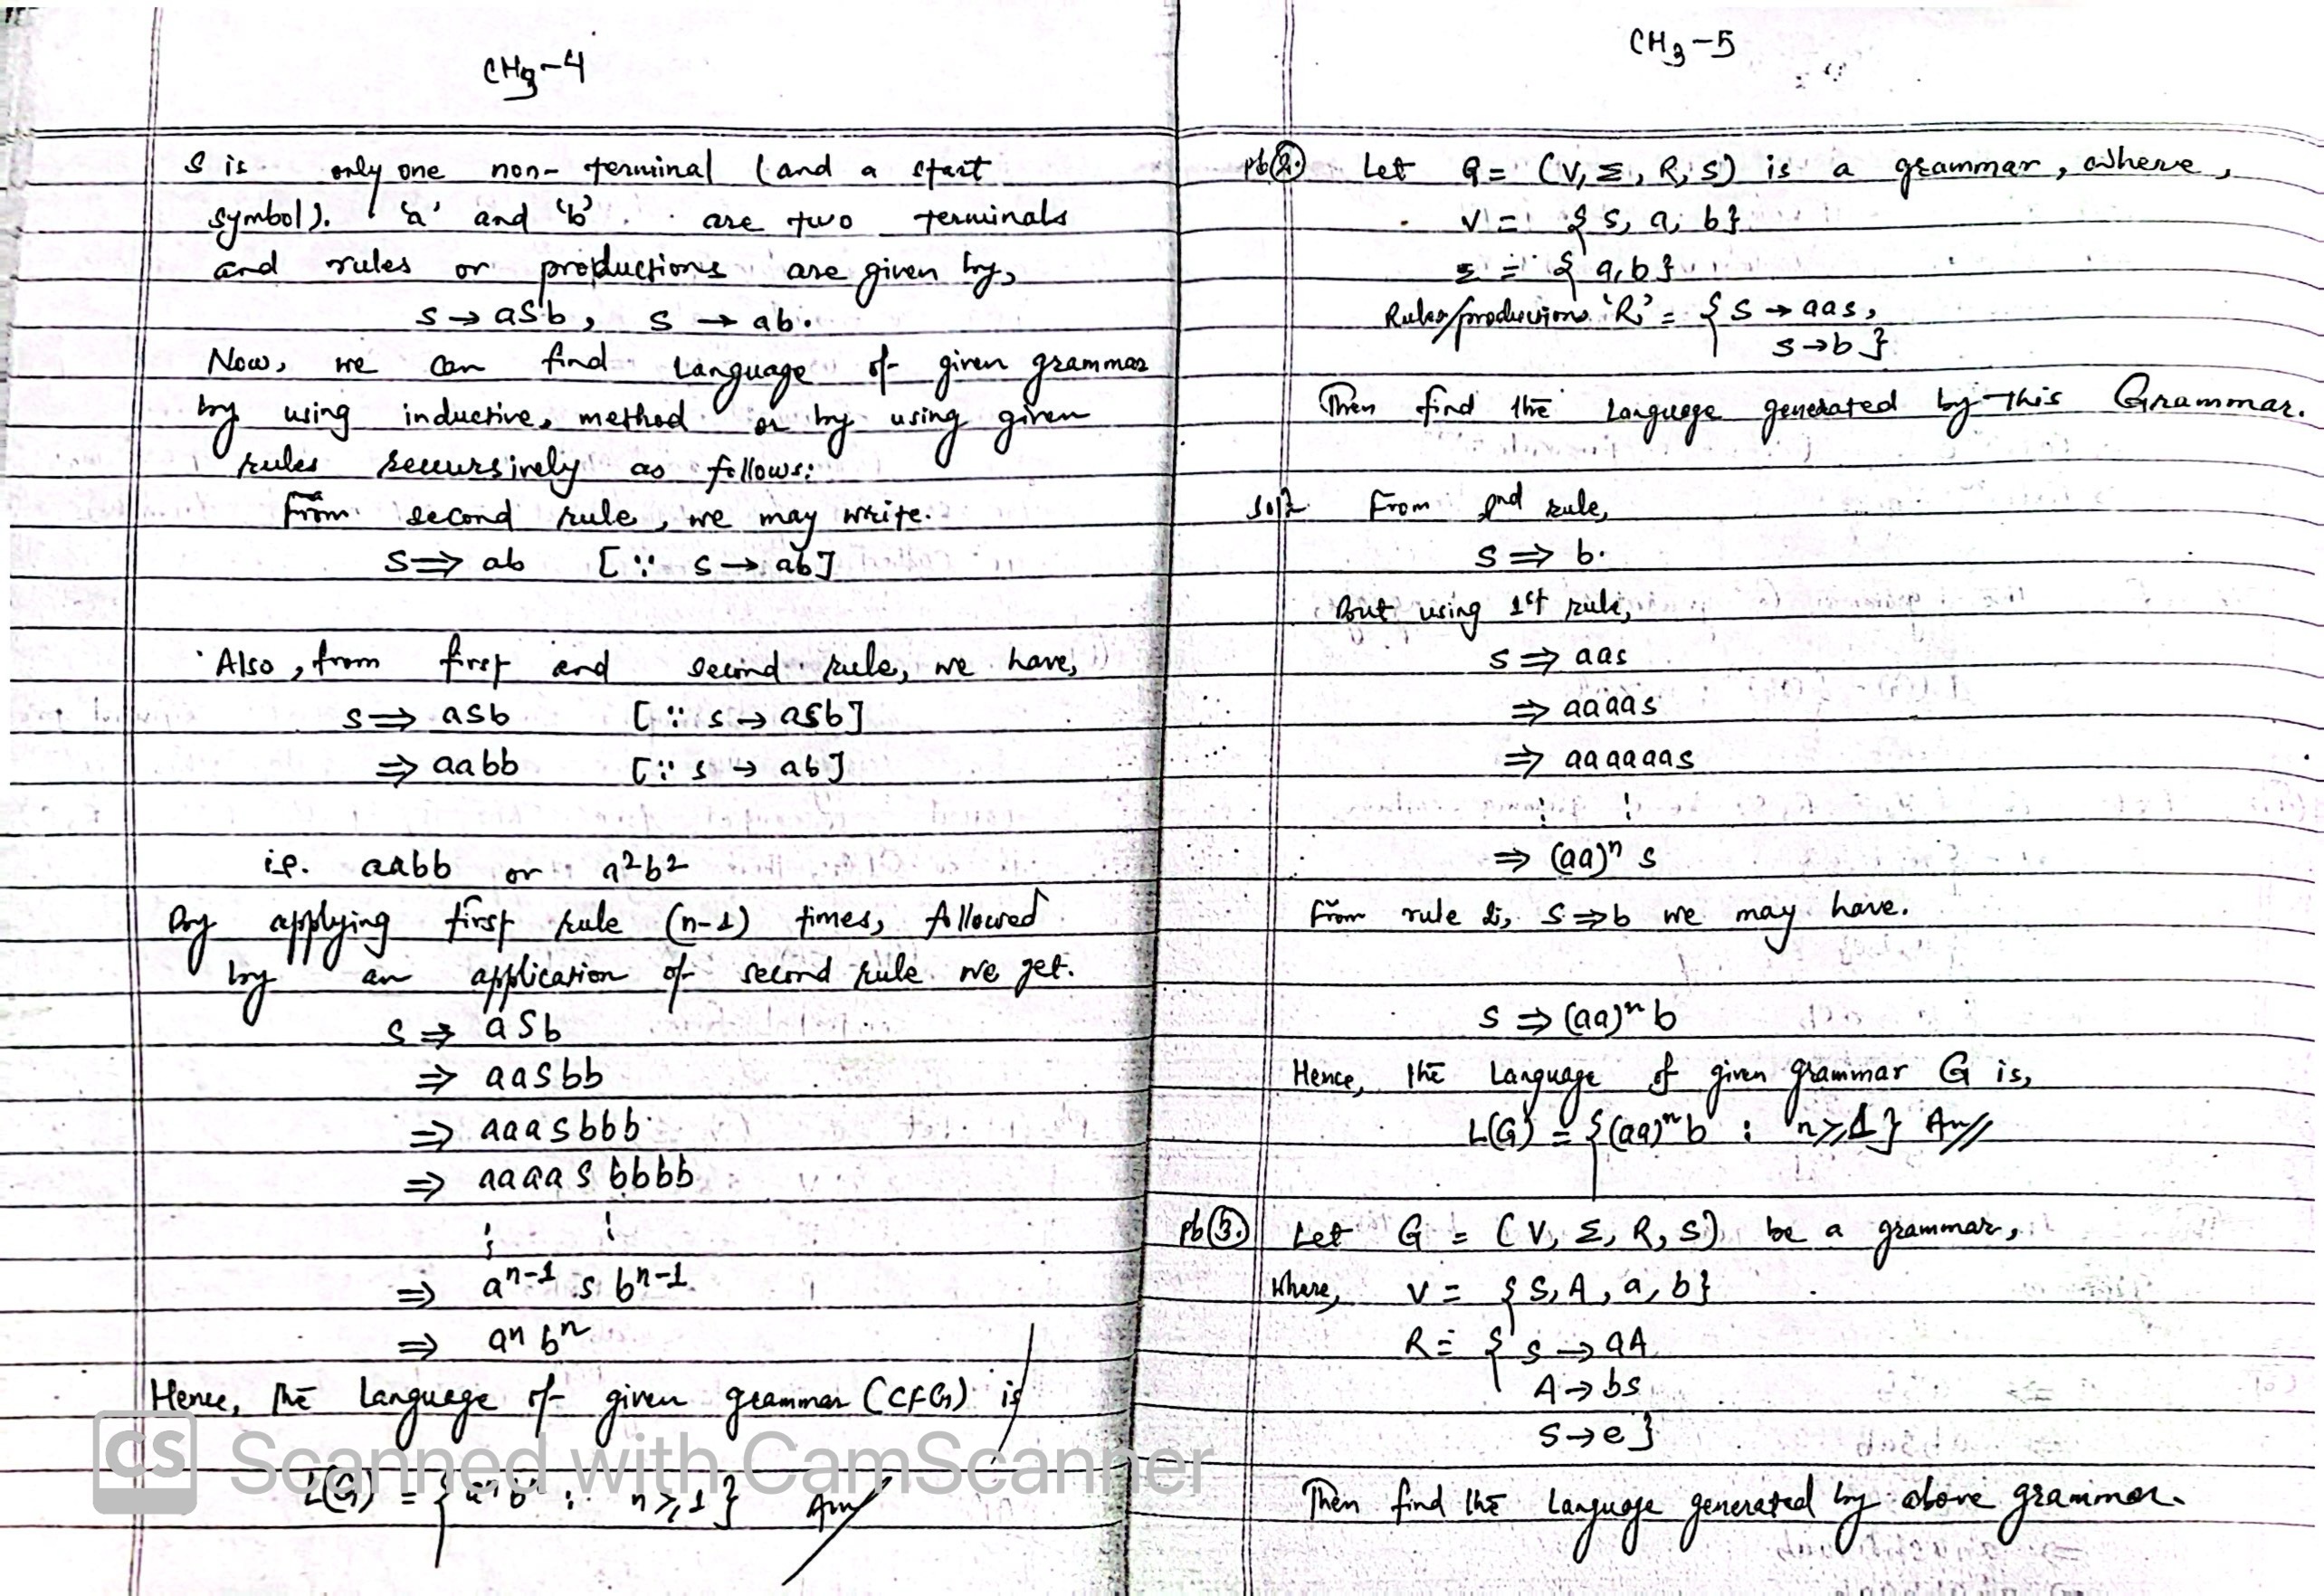 CH3-4
S is only one non-terminal (and a start
symbol). 'a' and 'b' are two terminals
and rules or productions are given by,
S → aSb, S → ab.
Now, we can find Language of given grammar
by using inductive method or by using given
rules recursively as follows:
From second rule, we may write.
S ⇒ ab [∵ S → ab]
Also, from first and second rule, we have,
S ⇒ aSb [∵ S → aSb]
⇒ aabb [∵ S → ab]
i.e. aabb or a²b²
By applying first rule (n-1) times, followed
by an application of second rule we get.
S ⇒ aSb
⇒ aaSbb
⇒ aaaSbbb
⇒ aaaaSbbbb
⋮ ⋮
⇒ aⁿ⁻¹ S bⁿ⁻¹
⇒ aⁿ bⁿ
Hence, the Language of given grammar (CFG) is
L(G) = {aⁿbⁿ : n ≥ 1} Ans
CH3-5
pb(2.) Let G = (V, Σ, R, S) is a grammar, where,
V = {S, a, b}
Σ = {a, b}
Rules/productions 'R' = {S → aaS,
S → b}
Then find the Language generated by this Grammar.
Solⁿ From 2nd rule,
S ⇒ b.
But using 1st rule,
S ⇒ aaS
⇒ aaaaS
⇒ aaaaaaS
⋮ ⋮
⇒ (aa)ⁿ S
From rule 2, S ⇒ b we may have.
S ⇒ (aa)ⁿ b
Hence, the Language of given grammar G is,
L(G) = {(aa)ⁿb : n ≥ 1} Ans
pb(3.) Let G = (V, Σ, R, S) be a grammar,
Where, V = {S, A, a, b}
R = {S → aA
A → bS
S → e}
Then find the Language generated by above grammar.
CS Scanned with CamScanner